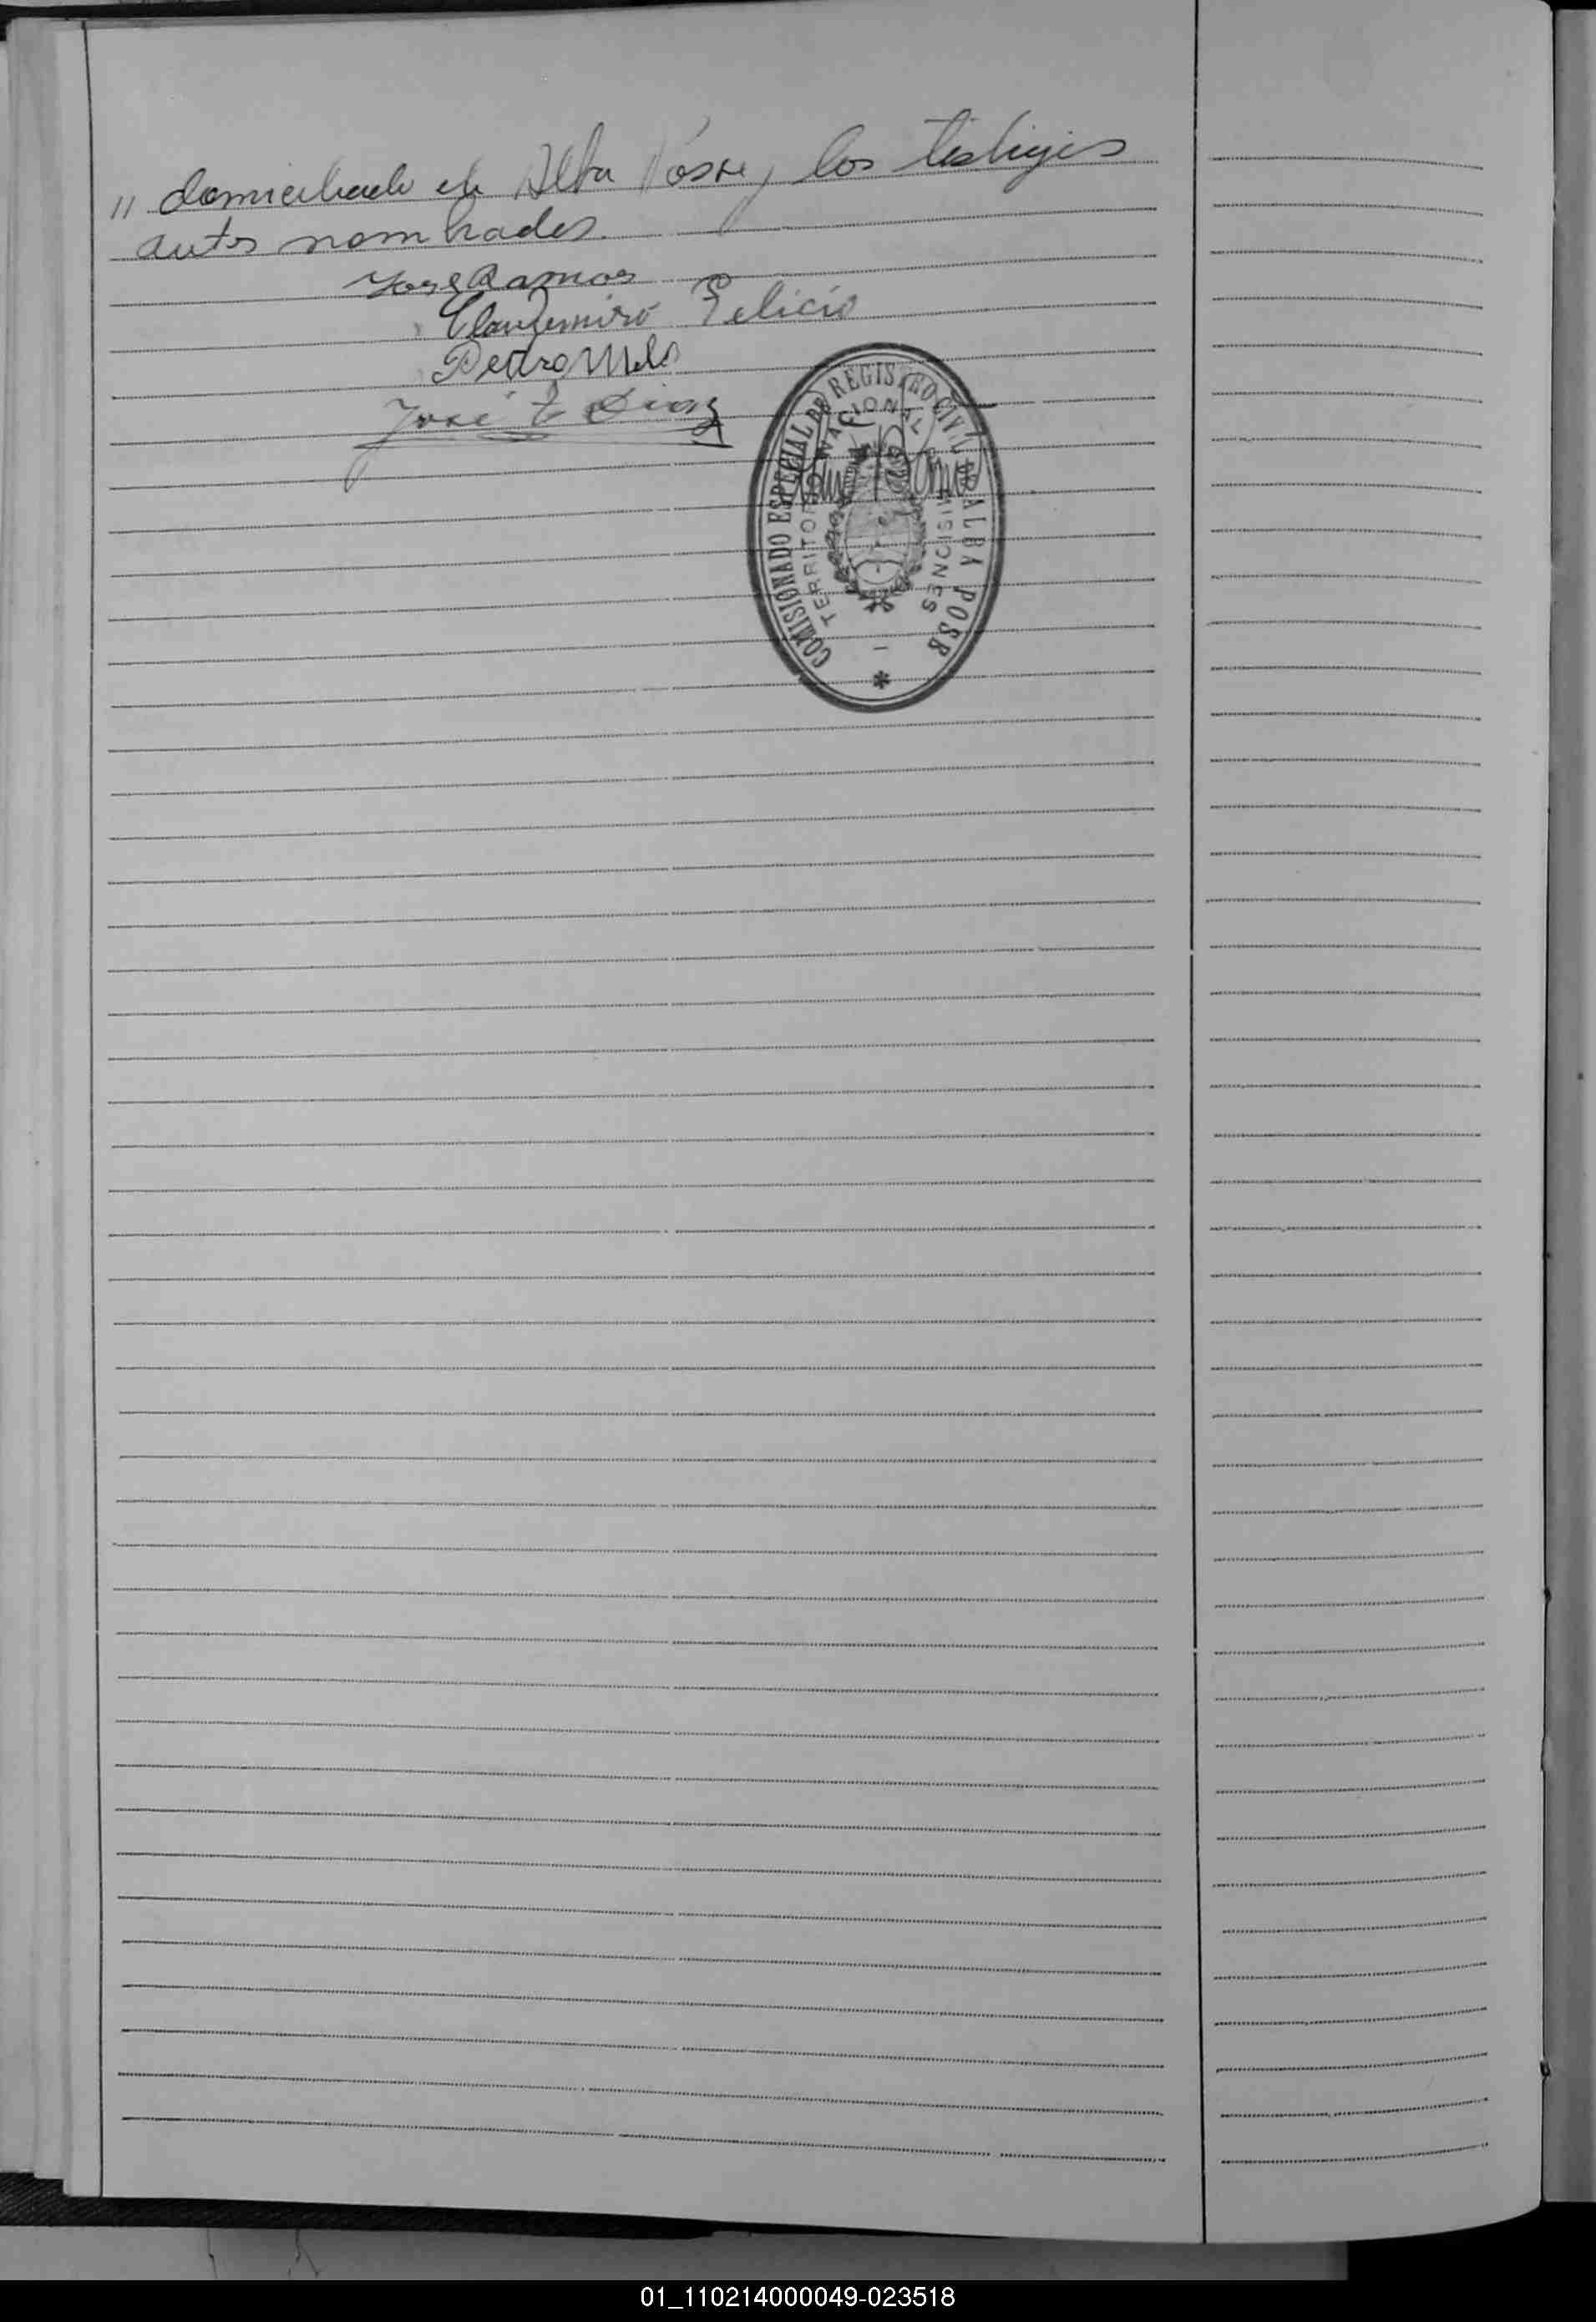 " domiciliado en Alba Posse, y los testigos
antes nombrados.
Jose Ramos
Claudemiro Felicio
Pedro Melo
José E Diaz
COMISIONADO ESPECIAL DE REGISTRO CIVIL ALBA POSE
TERRITORIO NACIONAL MISIONES
01_110214000049-023518